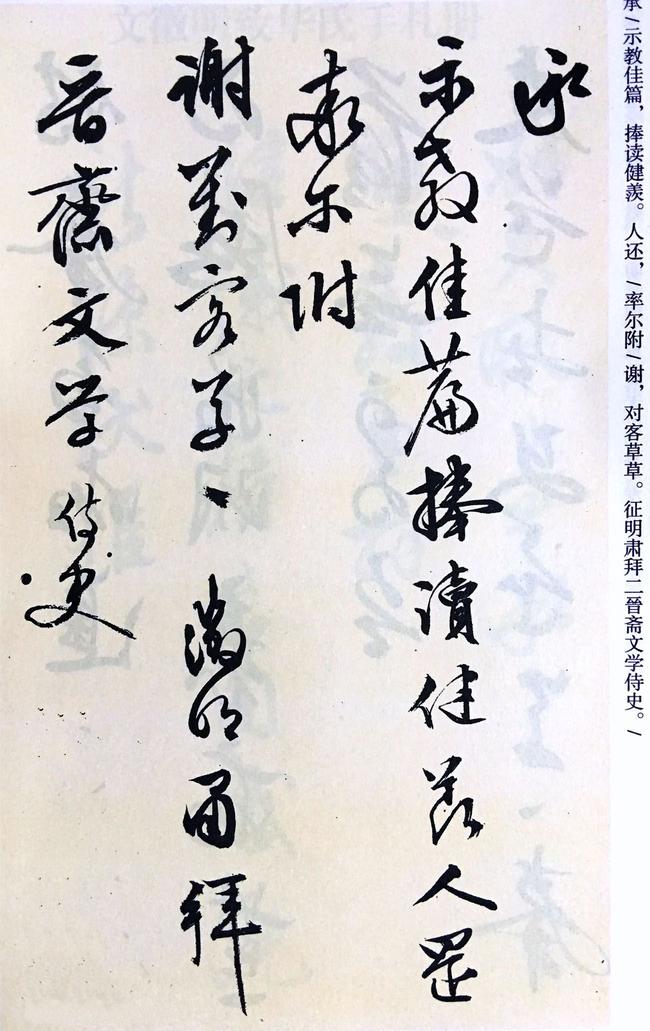 承/示教佳篇，捧读健羡。人还，/率尔附/谢，对客草草。征明肃拜二晋斋文学侍史。/
承
示教佳篇捧讀健羡人還
率尔附
謝對客草々徵明肅拜
晉齋文学侍史